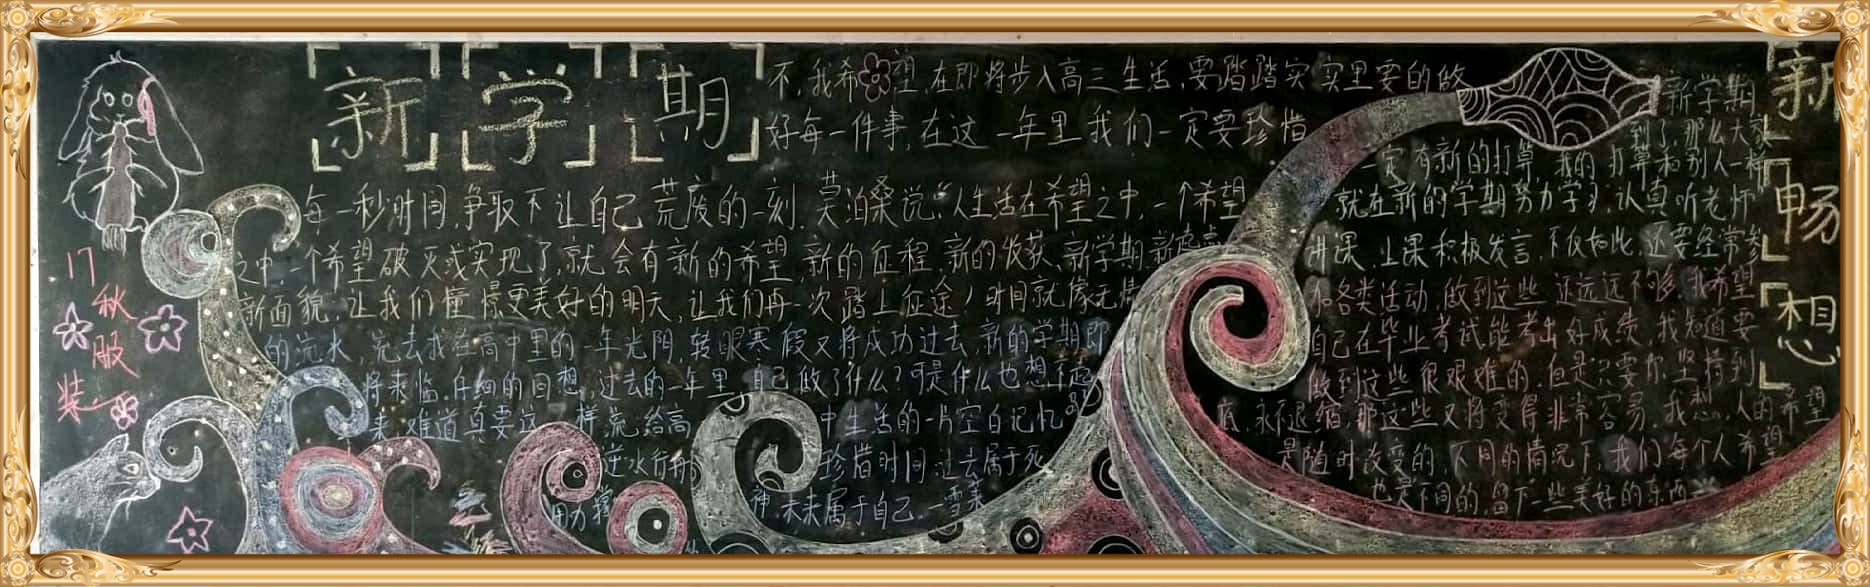 新学期
不,我希望,在即将步入高三生活,要踏踏实实里要的做
好每一件事,在这一年里我们一定要珍惜
每一秒时间,争取不让自己荒废的一刻.莫泊桑说:“人生活在希望之中,一个希望
之中一个希望破灭或实现了,就会有新的希望,新的征程,新的收获,新学期,新
新面貌,让我们憧憬更美好的明天,让我们再一次踏上征途!时间就像无情
的流水,荒去我在高中里的一年光阴,转眼寒假又将成功过去,新的学期即
将来临.仔细的回想,过去的一年里,自己做了什么?可是什么也想不起
来,难道真要这一样荒给高中生活的一片空白记忆吗
逆水行舟 珍惜时间,过去属于死
用力 神,未来属于自己.一雪莱
17秋服装
新
畅
想
新学期
到了,那么大家
一定有新的打算,我的打算和别人一样
就在新的学期努力学习,认真听老师
讲课,上课积极发言,不仅如此,还要经常参
和各类活动,做到这些还远远不够,我希望
自己在毕业考试能考出好成绩,我知道要
做到这些很艰难的,但是只要你坚持到
底,永不退缩,那这些又将变得非常容易,我想,人的希望
是随时改变的,不同的情况下,我们每个人希望
也是不同的,留下一些美好的东西